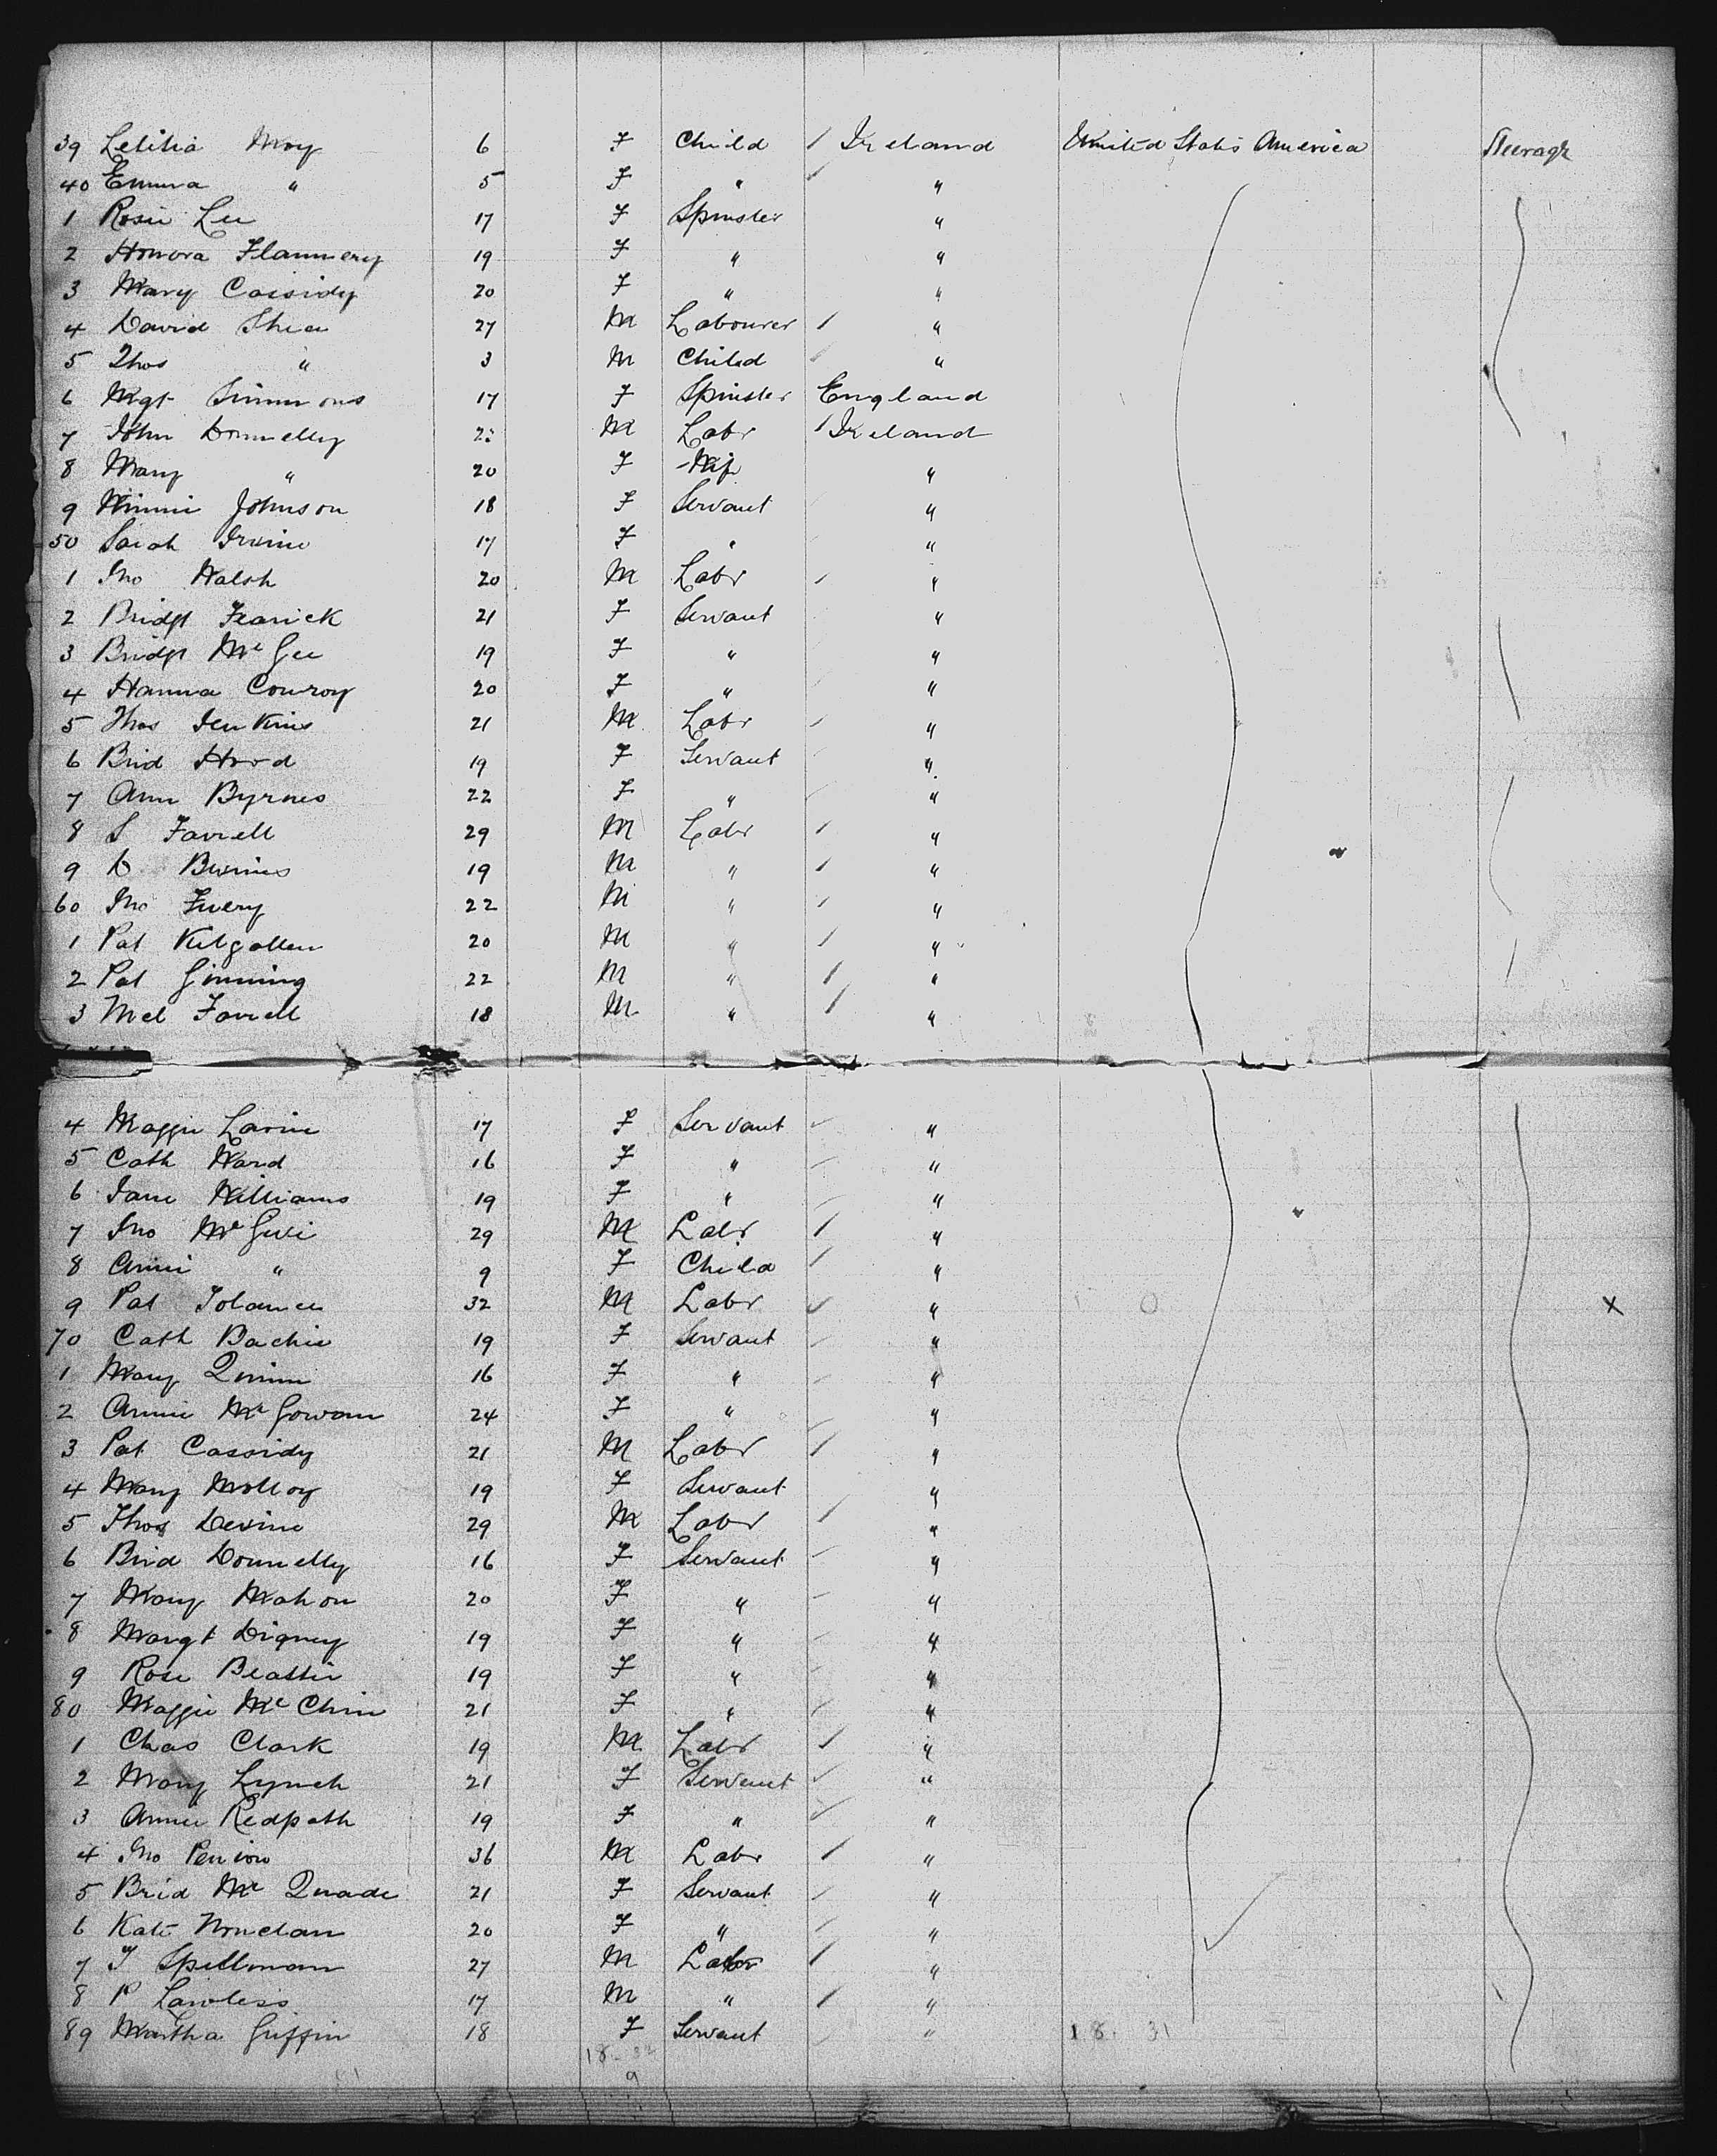 39 Letitia Moy 6 F Child / Ireland United States America Steerage
40 Emma " 5 F " "
1 Rosie Lee 17 F Spinster "
2 Honora Flannery 19 F " "
3 Mary Cassidy 20 F " "
4 David Shea 27 M Labourer / "
5 Thos " 3 M Child "
6 Mgt Simmons 17 F Spinster England
7 John Donnelly M Labr / Ireland
8 Mary " 20 F Wife "
9 Winnie Johnson 18 F Servant "
50 Sarah Irvine 17 F " "
1 Jno Walsh 20 M Labr "
2 Bridgt 21 F Servant "
3 Bridgt McGee 19 F " "
4 Hanna Conroy 20 F " "
5 Thos Jenkins 21 M Labr "
6 Brid Hood 19 F Servant "
7 Ann Byrnes 22 F " "
8 S Farrell 29 M Labr / "
9 D 19 M " / "
60 Jno 22 M " / "
1 Pat Kilgallen 20 M " / "
2 Pat 22 M " / "
3 Mcl Farrell 18 M " / "
4 Maggie Lavin 17 F Servant "
5 Cath Ward 16 F " "
6 Jane Williams 19 F " "
7 Jno 29 M Labr / "
8 Annie " 9 F Child / "
9 Pat 32 M Labr "
70 Cath 19 F Servant "
1 Mary Quinn 16 F " "
2 Annie McGowan 24 F " "
3 Pat Cassidy 21 M Labr / "
4 Mary Molloy 19 F Servant "
5 Thos Devine 29 M Labr / "
6 Brid Donnelly 16 F Servant "
7 Mary Mahon 20 F " "
8 Margt Digney 19 F " "
9 Rose Beattie 19 F " "
80 Maggie 21 F " "
1 Chas Clark 19 M Labr / "
2 Mary Lynch 21 F Servant "
3 Annie Redpath 19 F " "
4 Jno 36 M Labr / "
5 Brid McQuade 21 F Servant "
6 Kate 20 F " "
7 T Spillman 27 M Labr / "
8 P Lawless 17 M " / "
89 Martha Griffin 18 F Servant " 18. 31
18 - 32
9